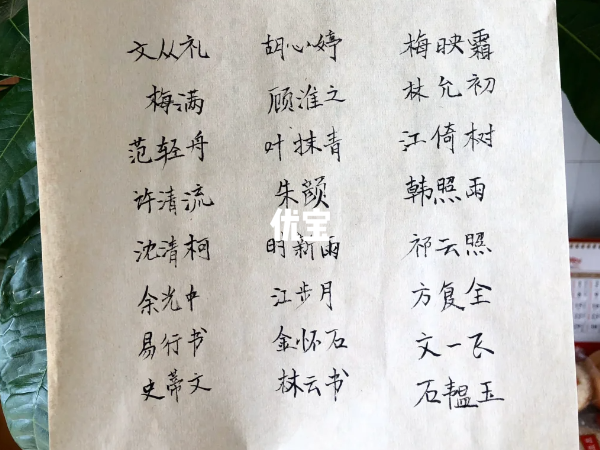 文从礼 胡心婷 梅映霜
梅满 顾淮之 林允初
范轻舟 叶抹青 江倚树
许清流 朱颜 韩照雨
沈清柯 明新雨 祁云照
余光中 江步月 方复全
易行书 金怀石 文一飞
史蒂文 林云书 石韫玉
优宝